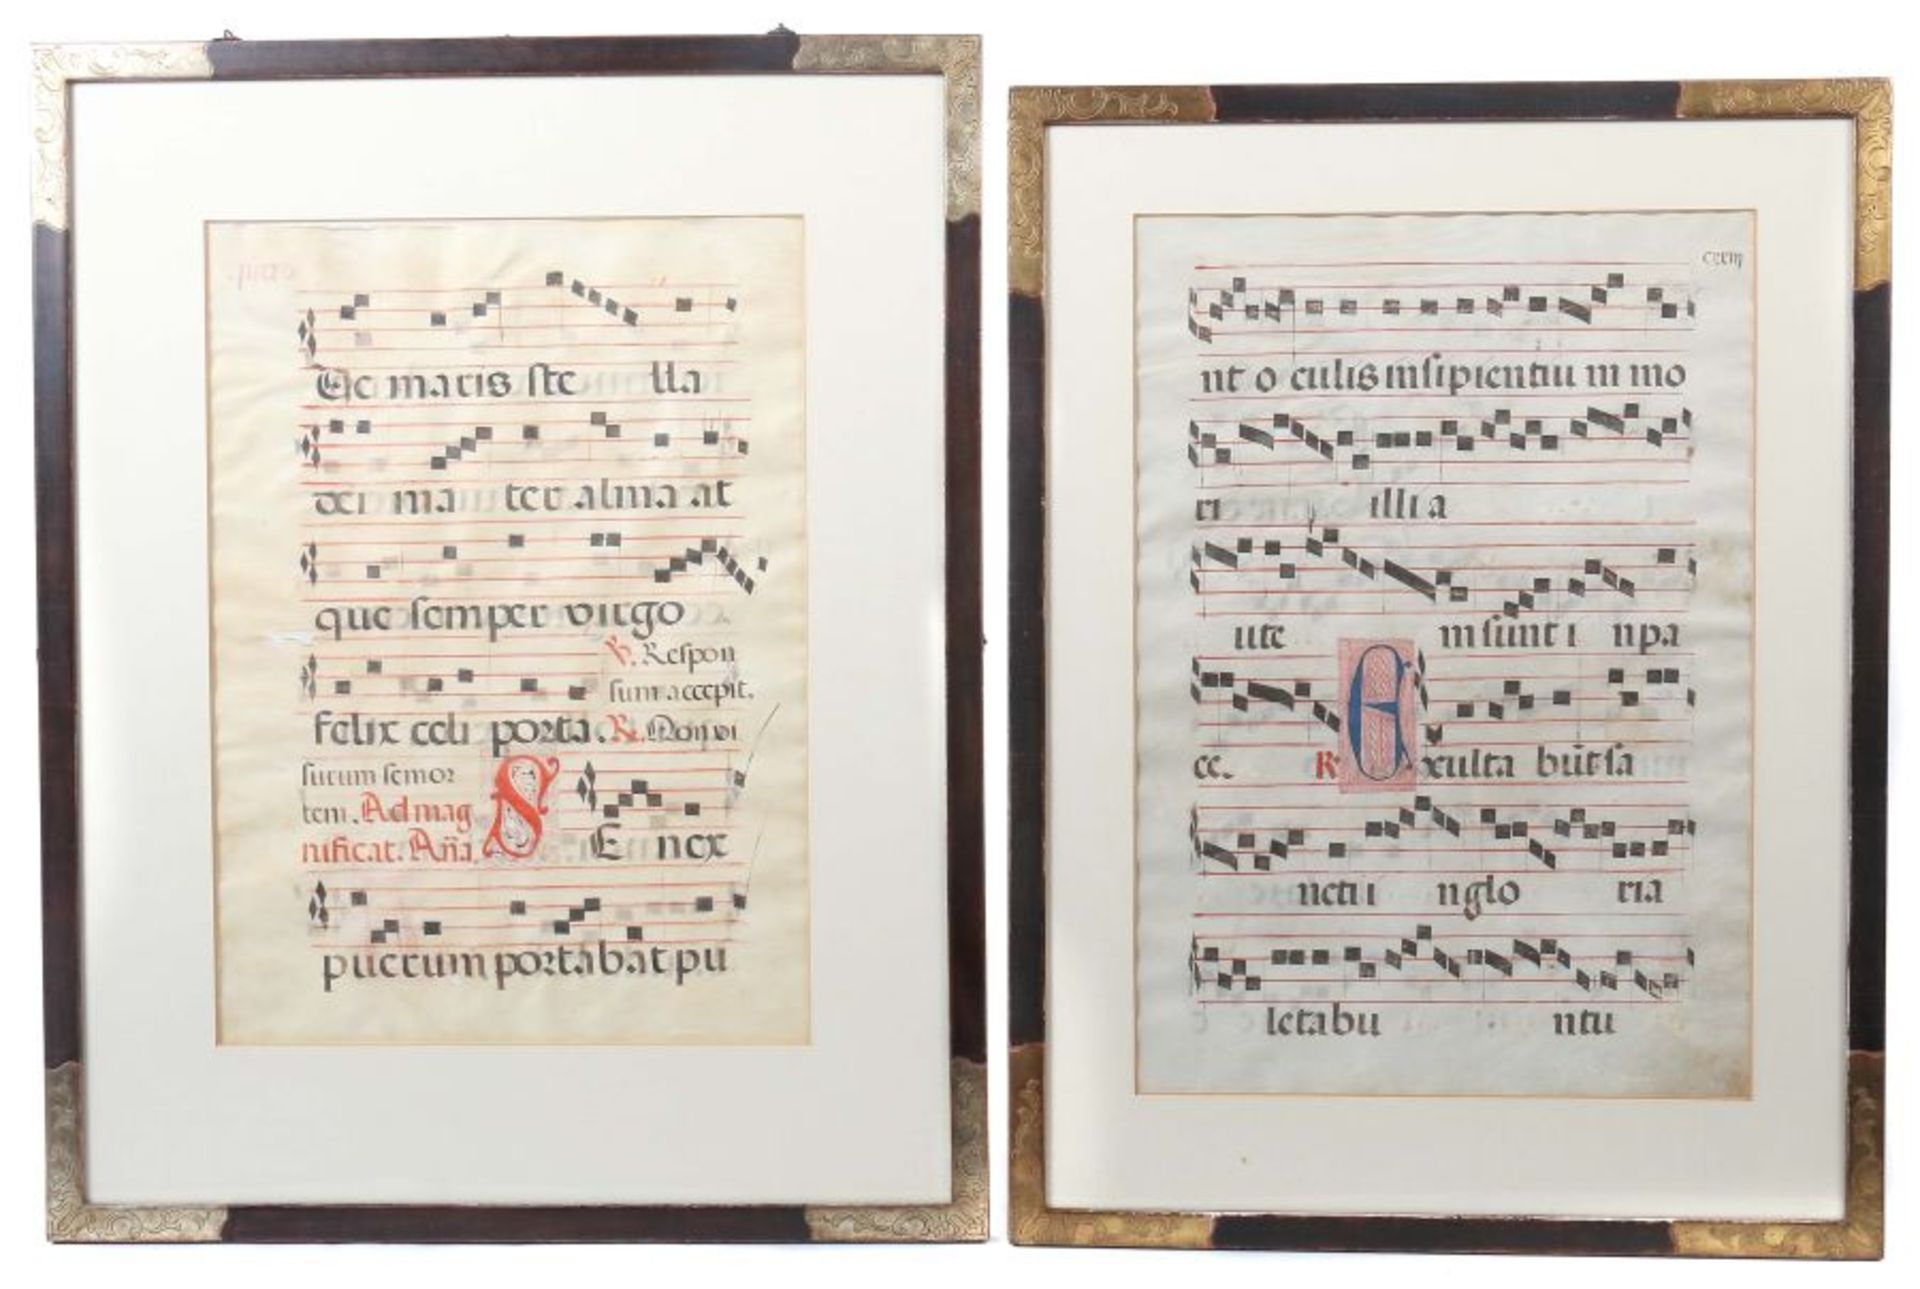 Ec maris ste lla
dei ma ter alma at
que semper virgo
V. Respon
sum accepit.
felix celi porta. R. Non vi
surum se mor
tem. Ad mag
nificat. Aña S E nex
puerum portabat pu
cxxiij
nt o culis insipientiu m mo
ri illi a
ute m sunt i n pa
ce. R. E xulta būt sa
ncti i nglo ria
letabu ntu